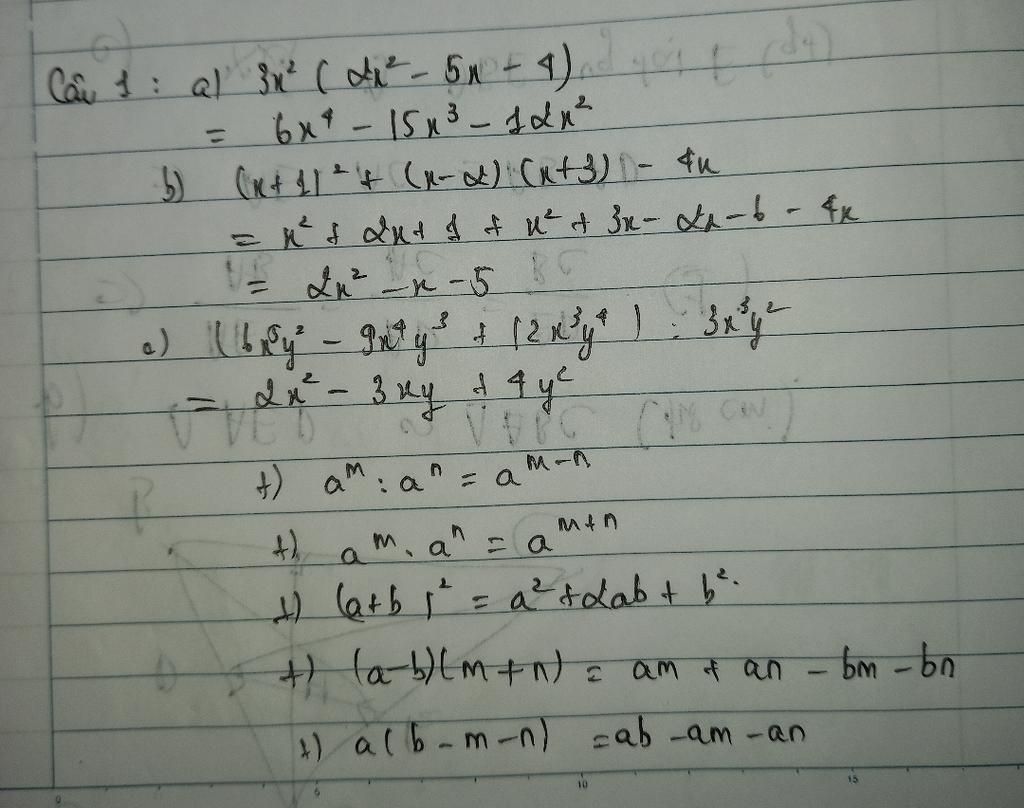 Câu 1 : a) 3x² ( 2x² - 5x - 4)
= 6x⁴ - 15x³ - 12x²
b) (x+1)² + (x-2) (x+3) - 4x
= x² + 2x + 1 + x² + 3x - 2x - 6 - 4x
= 2x² - x - 5
c) (6x⁵y² - 9x⁴y³ + 12x³y⁴) : 3x³y²
= 2x² - 3xy + 4y²
+) aᵐ : aⁿ = aᵐ⁻ⁿ
+) aᵐ . aⁿ = aᵐ⁺ⁿ
+) (a+b)² = a² + 2ab + b².
+) (a-b)(m+n) = am + an - bm - bn
+) a(b-m-n) = ab - am - an
0 5 10 15